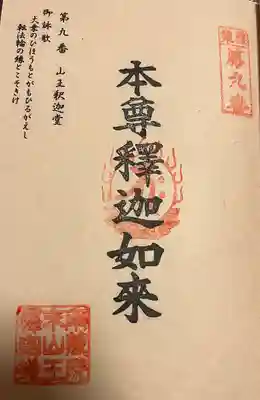 第九番
本尊釋迦如來
第九番 山王釈迦堂
御詠歌
大乗のひほうもとがもひるがえし
転法輪の縁とこそきけ